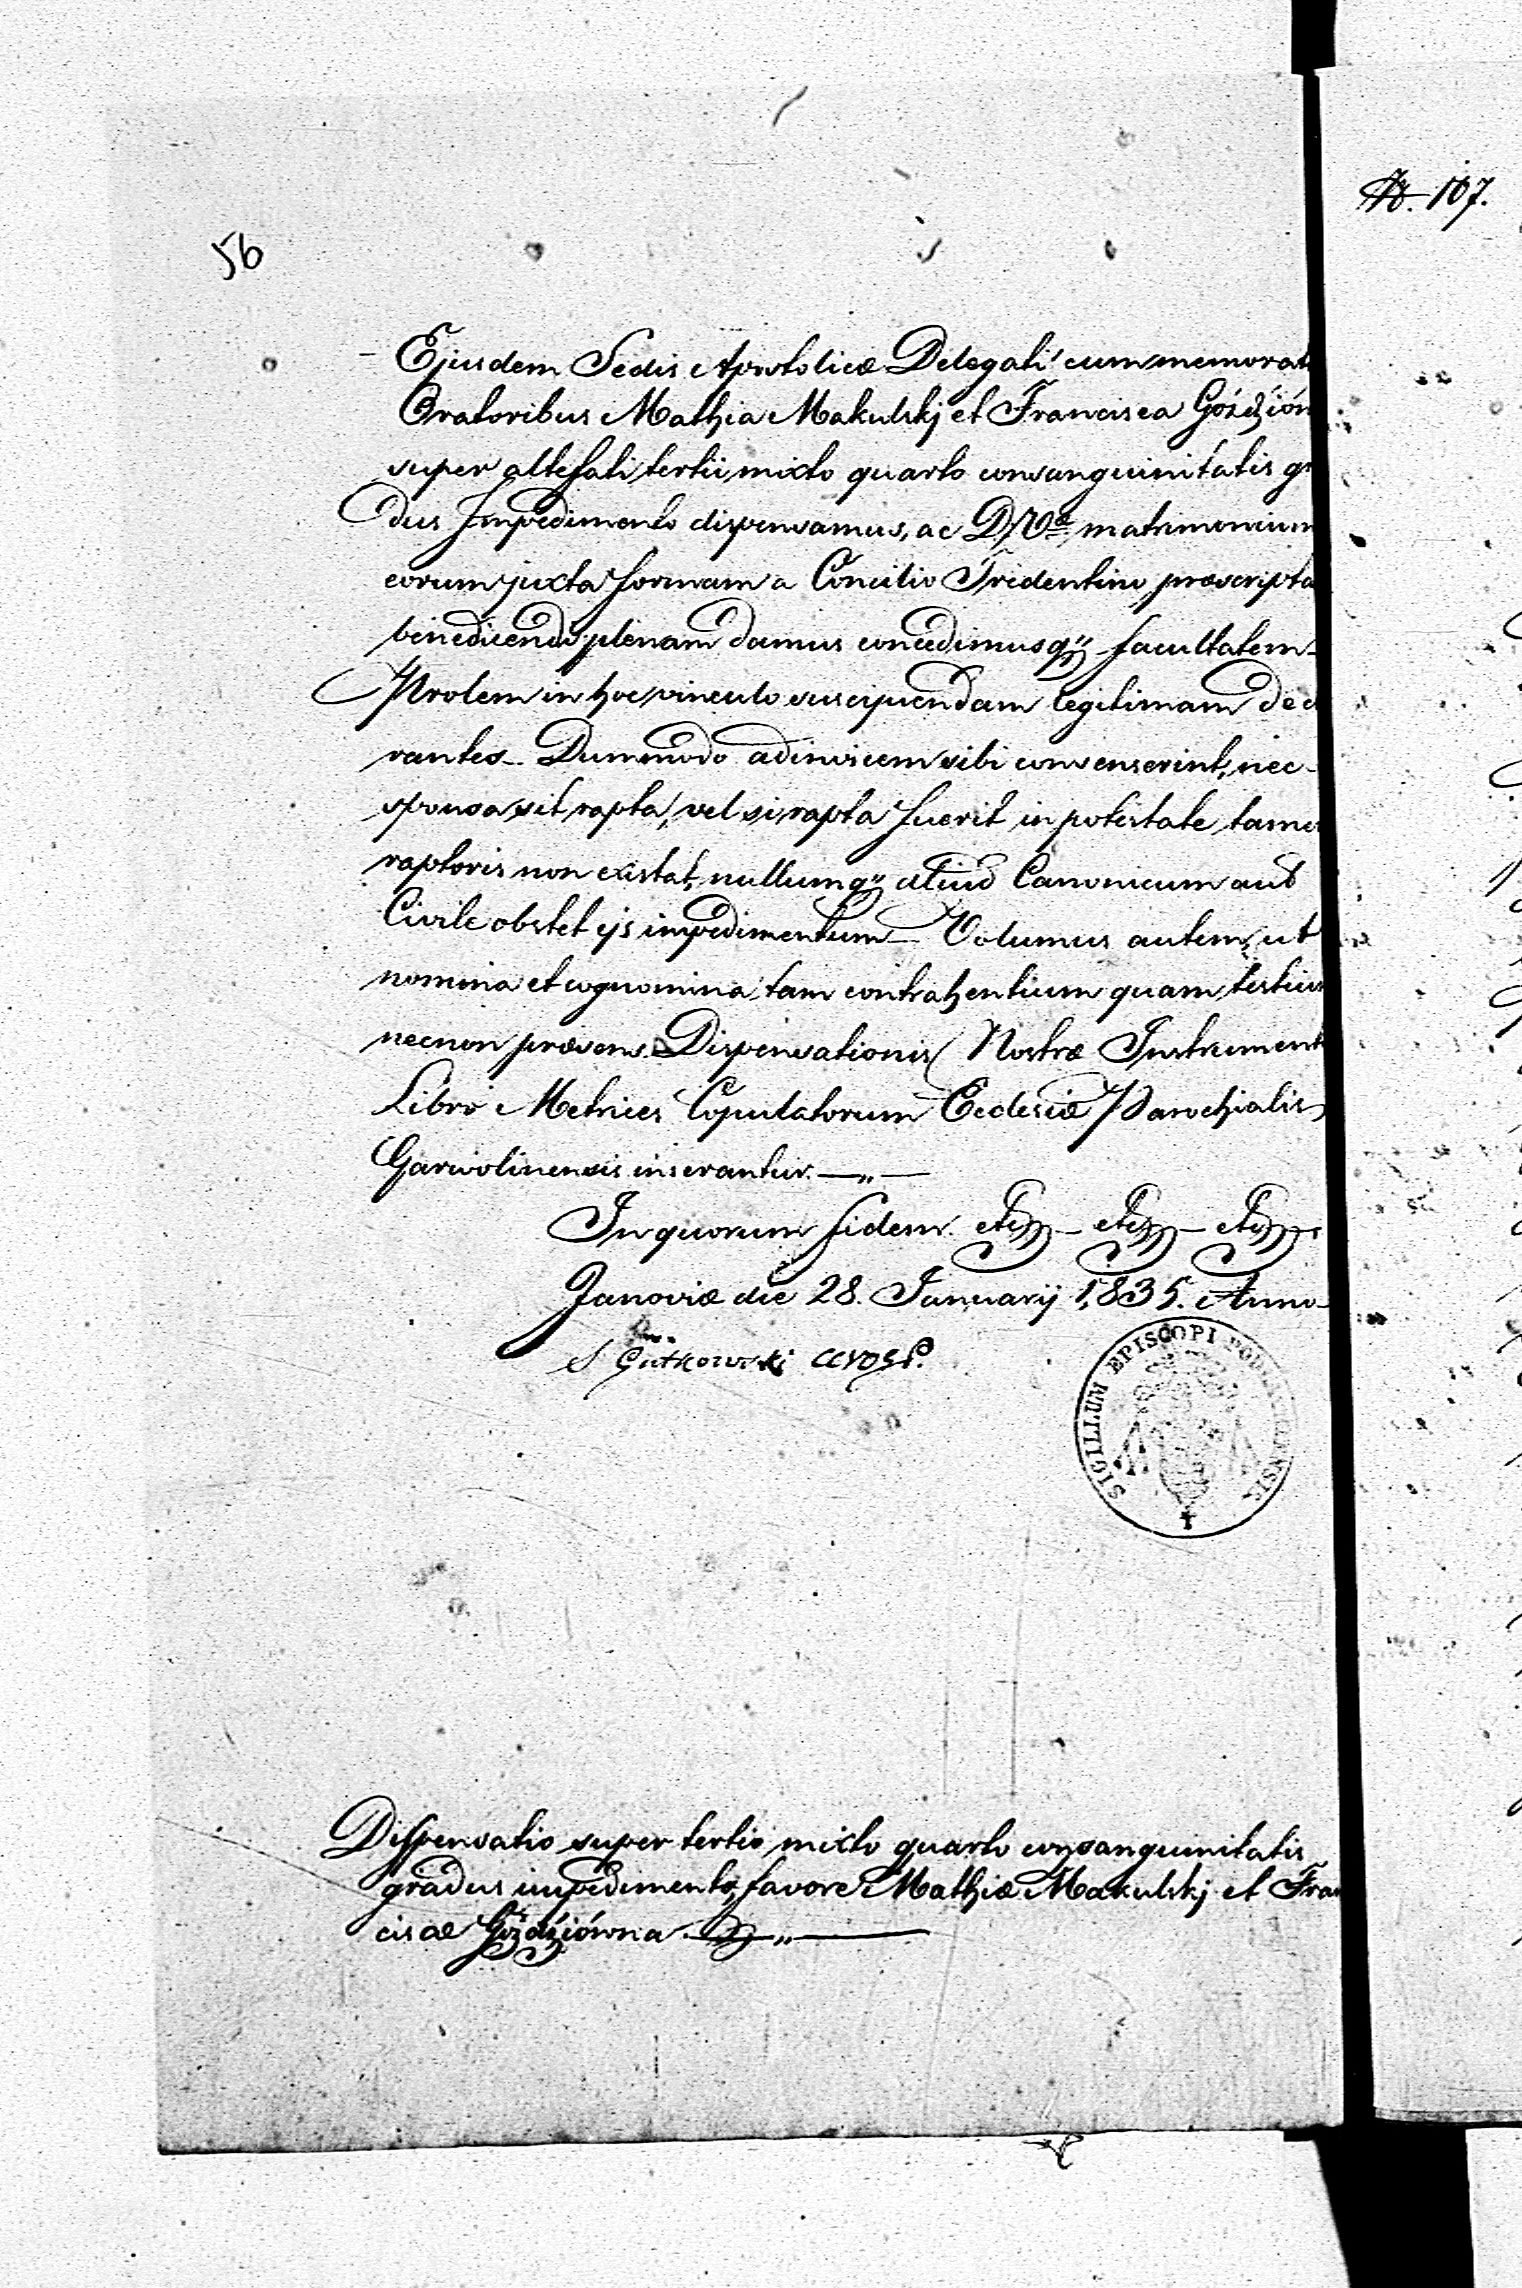 № 107.
56
Ejusdem Sedis Apostolicæ Delegati cum memorat
Oratoribus Mathia Makulskj et Francisca Góździón
super altefati tertii mixto quarto consanguinitatis gr
dus Impedimento dispensamus, ac D, Væ matrimonium
eorum juxta formam a Concilio Tridentino præscripta
benedicendi plenam damus concedimusqȝ facultatem_
Prolem in hoc vinculo suscipiendam legitimam decl
rantes_ Dummodo adinvicem sibi consenserint, nec_
sponsa sit rapta, vel si rapta fuerit in potestate tamen
raptoris non existat, nullumqȝ aliud Canonicum aut
Civile obstet ijs impedimentum_ Volumus autem, ut
nomina et cognomina, tam contrahentium quam testium
necnon præsens Dispensationis Nostræ Instrument
Libro Metrices Copulatorum Ecclesiæ Parochialis
Garwolinensis inserantur. —„—
In quorum fidem etc_ etc_ etc
Janoviæ die 28. Januarij 1835. Anno_
S Gutkowski
SIGILLUM EPISCOPI
Dispensatio super tertio mixto quarto consanguinitatis
gradus impedimento, favore Mathiæ Makulskj et Fran
cisæ Góździówna —„—